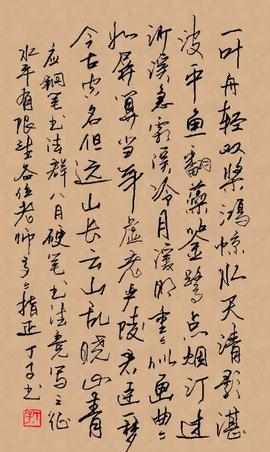 一叶舟轻双桨鸿惊水天清影湛
波平鱼翻藻鉴鹭点烟汀过
沙溪急霜溪冷月溪明重重似画曲曲
如屏算当年虚老严陵君臣一梦
今古空名但远山长云山乱晓山青
应钢笔书法群八月硬笔书法竞写之征
水平有限请各位老师多多指正 书